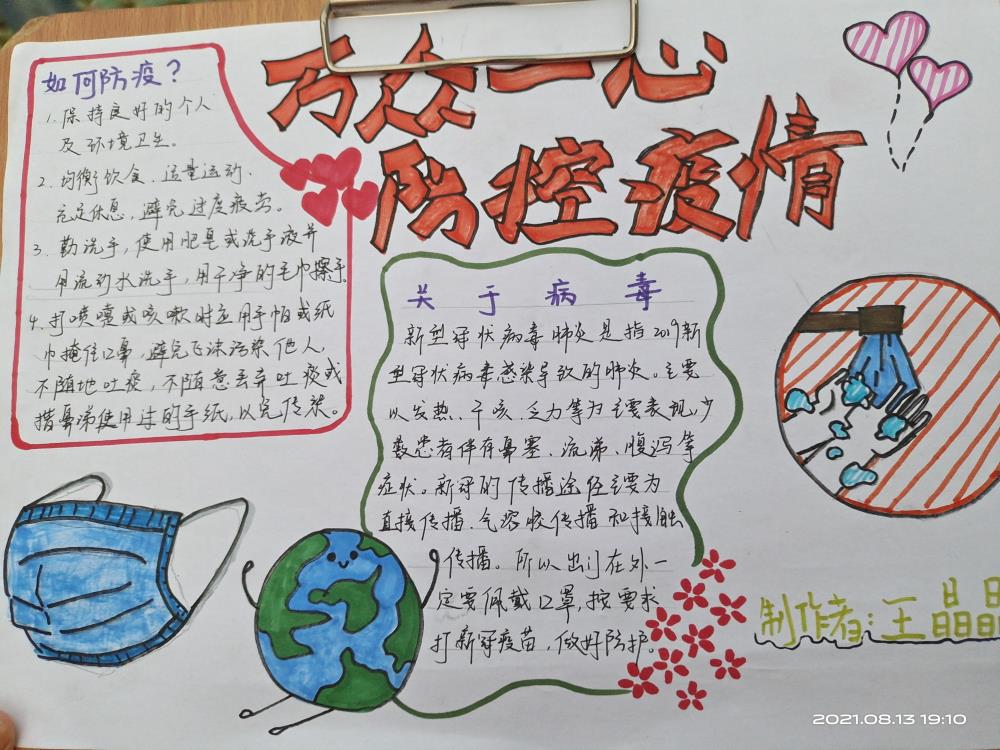 万众一心
防控疫情
如何防疫？
1. 保持良好的个人
及环境卫生。
2. 均衡饮食、适量运动、
充足休息，避免过度疲劳。
3. 勤洗手，使用肥皂或洗手液并
用流动水洗手，用干净的毛巾擦手。
4. 打喷嚏或咳嗽时应用手帕或纸
巾掩住口鼻，避免飞沫污染他人，
不随地吐痰，不随意丢弃吐痰或
揩鼻涕使用过的手纸，以免传染。
关于病毒
新型冠状病毒肺炎是指2019新
型冠状病毒感染导致的肺炎。主要
以发热、干咳、乏力等为主要表现，少
数患者伴有鼻塞、流涕、腹泻等
症状。新冠的传播途径主要为
直接传播、气溶胶传播和接触
传播。所以出门在外一
定要佩戴口罩，按要求
打新冠疫苗，做好防护。
制作者：王晶晶
2021.08.13 19:10